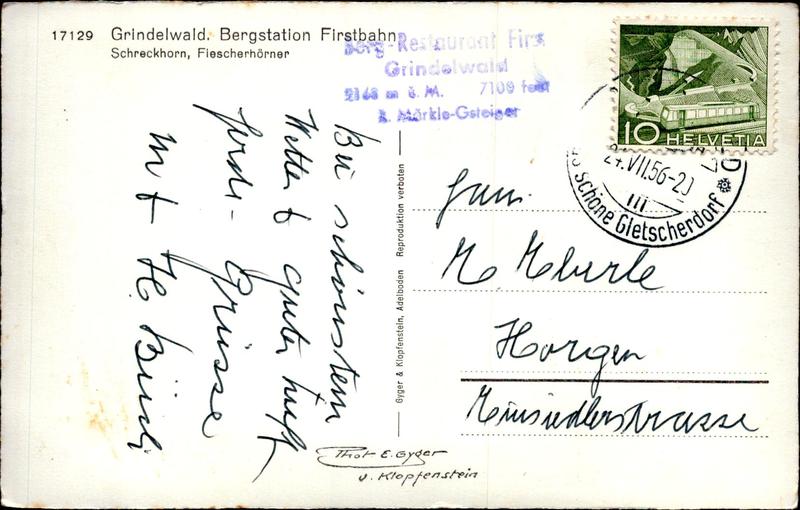 17129 Grindelwald. Bergstation Firstbahn
Schreckhorn, Fiescherhörner
Berg-Restaurant First
Grindelwald
2168 m ü. M. 7109 feet
Märkle-Gsteiger
HELVETIA
10
24.VII.56-20
schöne Gletscherdorf
Bei schönstem
Wetter & guter Luft
Grüsse
H.
Fam.
Eberle
Horgen
Einsiedlerstrasse
Gyger & Klopfenstein, Adelboden Reproduktion verboten
Phot E. Gyger
u. Klopfenstein